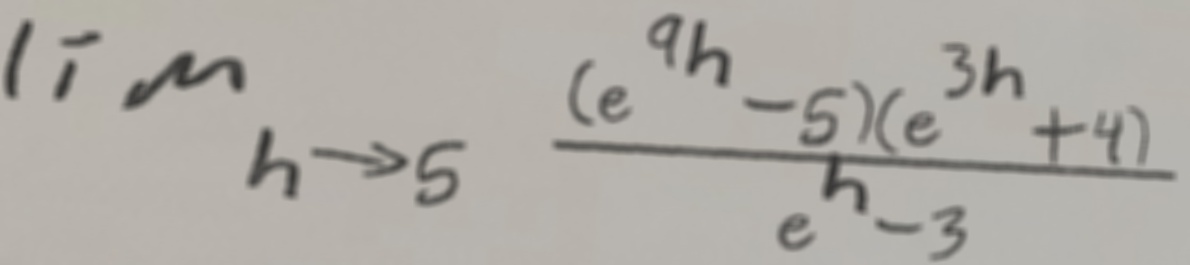 lim_{h→5} \frac{(e^{9h}-5)(e^{3h}+4)}{e^{h}-3}